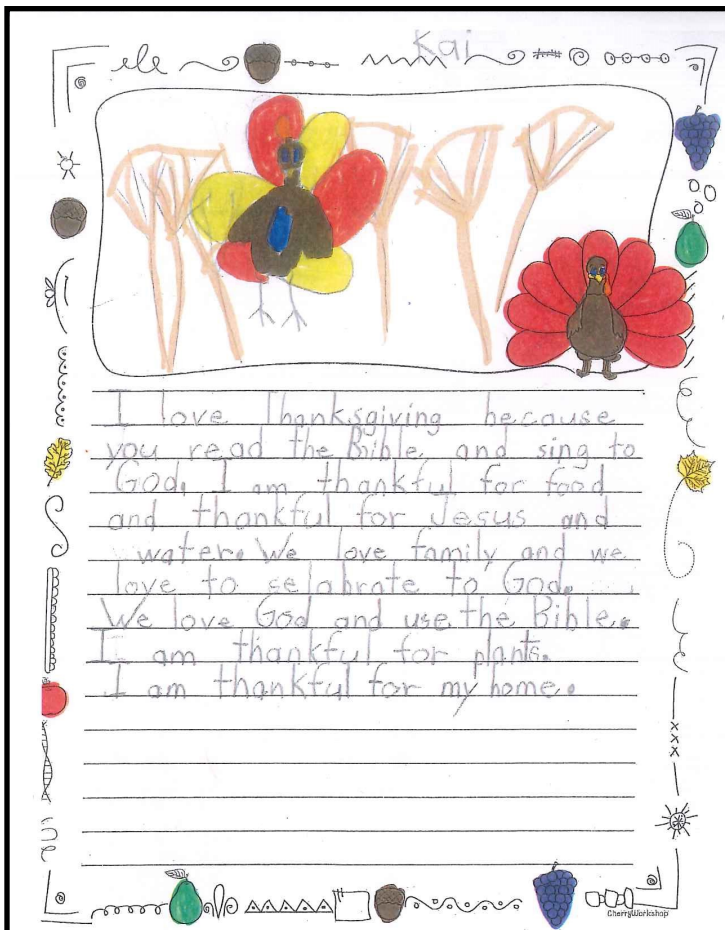 Kai
I love Thanksgiving because
you read the Bible and sing to
God. I am thankful for food
and thankful for Jesus and
water. We love family and we
love to selabrate to God.
We love God and use the Bible.
I am thankful for plants.
I am thankful for my home.
CherryWorkshop